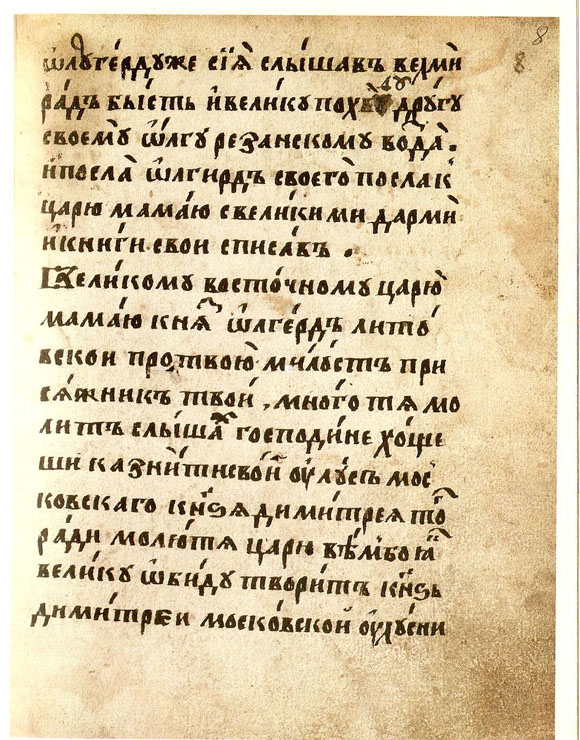 8
ѿлугердуже сїѧ слышавъ велми
радъ бысть ивелику похвⷧу другу
своему ѡлгу резанскому вода.
ипосла ѡлгирдъ своего посла к
царю мамаю свеликими дарми
икниги свои списавъ .
Великому восточному царю
мамаю кнѧ ѡлгердъ лито
вскои протвою милость при
сѧжникъ твои , много тѧ мо
литъ слышаⷯ господине хоще
ши казнитисвои оулусь мос
ковскаго кнѕѧ димитреѧ то
ради молютѧ царю вѣмбо ꙗ
велику ѡбиду творитъ кнѕь
димитреи московскои оулусни